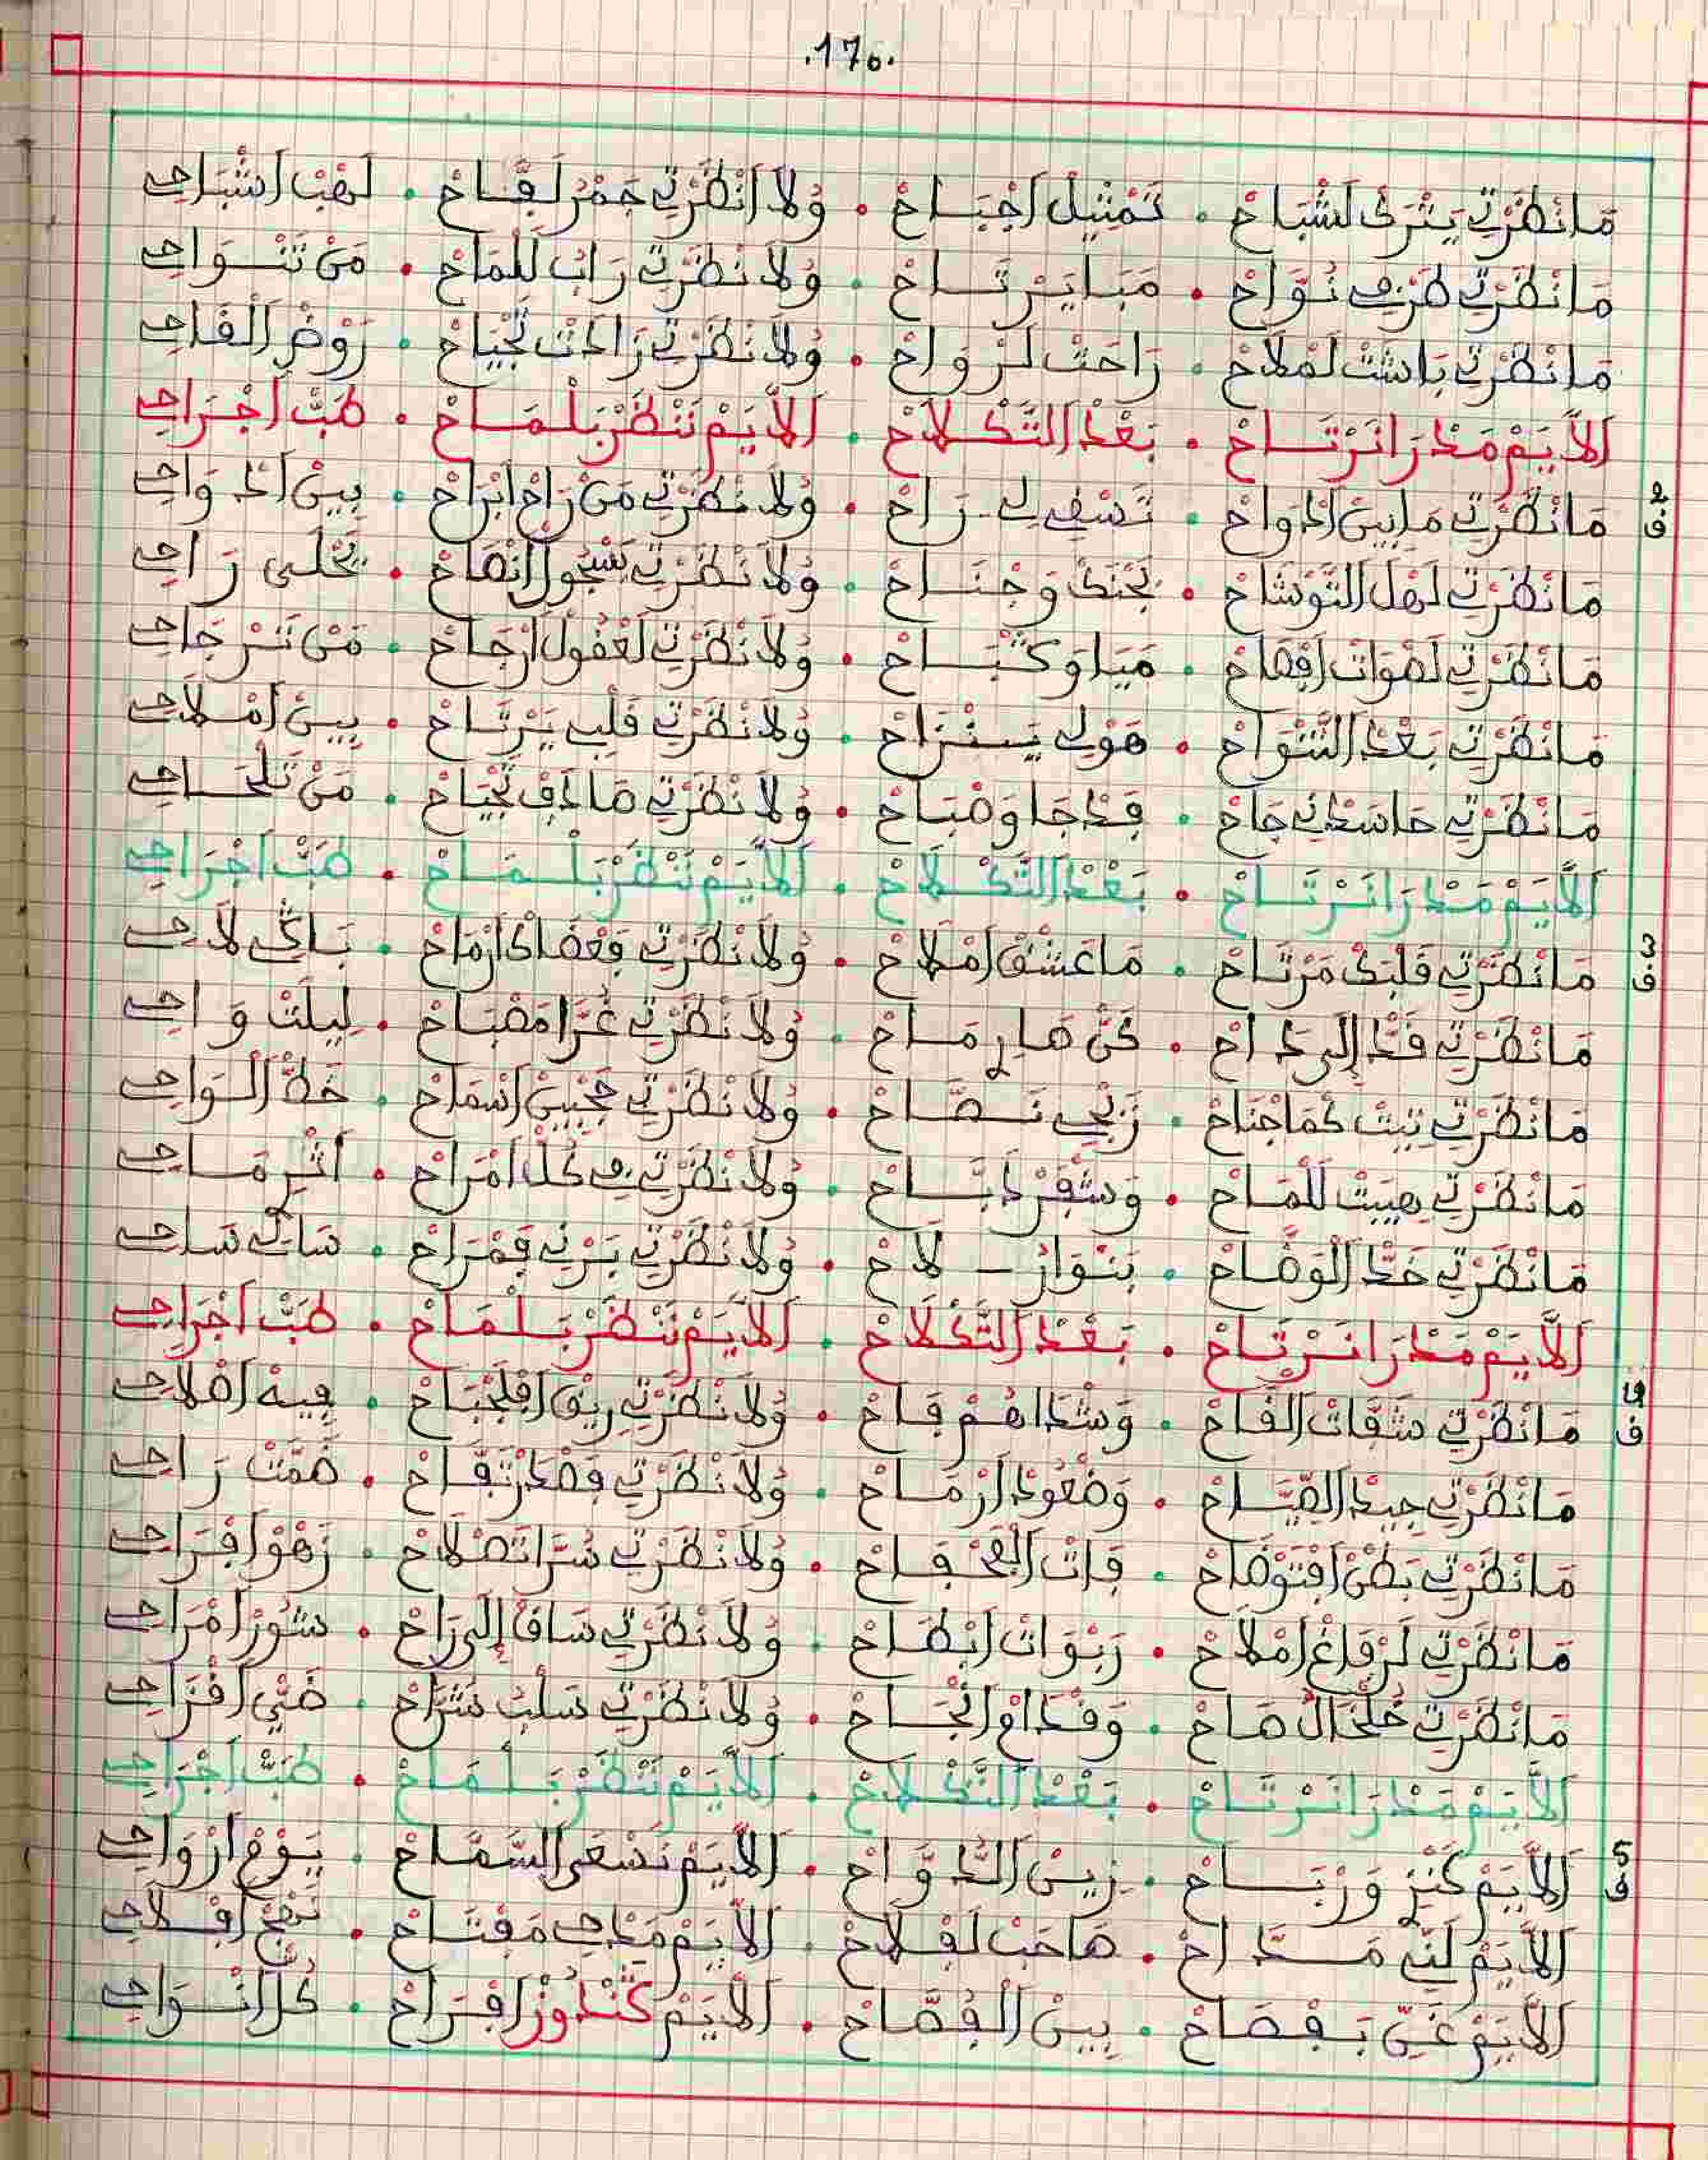 .170.
مَا نْظَرْتِ يَثْرَكْ لَشْبَاحْ . تَمْثِيلْ اَجْبَاحْ . وُلَا اَنْظَرْتِ جَمْرْ لَقَّاحْ . لَهْبْ اَشْبَاحِي
مَا نْظَرْتِ طَرْفِي نُوَّاحْ . مَبَا يَرْتَاحْ . وُلَا نْظَرْتِ رَابْ لَلْمَاحْ . مَنْ تَنْوَاحِي
مَا نْظَرْتِ بَاشَتْ لَمْلَاحْ . رَاحَتْ لَرْوَاحْ . وُلَا نْظَرْتِ زَادَتْ تَحْيَاحْ . رَوْضْ اَلْقَاحِي
اَلَايَمْ مَدْرَا نَرْتَاحْ . بَعْدْ التَّكْلَاحْ . اَلَايَمْ نَنْظَرْ بَلْمَاحْ . طَبّْ اَجْرَاحِي
2 ف
مَا نْظَرْتِ مَابِينْ اَدْوَاحْ . تَسْفِي لِي رَاحْ . وُلَا نْظَرْتِ مَنْ رَاحْ اَبْرَاحْ . بِينْ اَدْوَاحِي
مَا نْظَرْتِ لَهْلْ التَّوْشَاحْ . بَجْنَكْ وَجْنَاحْ . وُلَا نْظَرْتِ بَسْجُولْ اَنْصَاحْ . يَحْلَى رَاحِي
مَا نْظَرْتِ لَصْوَاتْ اَفْصَاحْ . مَيَا وَكْثَبَاحْ . وُلَا نْظَرْتِ لَعْقُولْ اَرْجَاحْ . مَنْ تَرْجَاحِي
مَا نْظَرْتِ بَعْدْ التَّنْوَاحْ . هَوْلِي يَنْزَاحْ . وُلَا نْظَرْتِ قَلْبِ يَرْتَاحْ . بِينْ اَمْلَاحِي
مَا نْظَرْتِ حَاسَدْنِي جَاحْ . فَدْجَا وَصْبَاحْ . وُلَا نْظَرْتِ صَادَفْ تَحْيَاحْ . مَنْ تَلْحَاحِي
اَلَايَمْ مَدْرَا نَرْتَاحْ . بَعْدْ التَّكْلَاحْ . اَلَايَمْ نَنْظَرْ بَلْمَاحْ . طَبّْ اَجْرَاحِي
3 ف
مَا نْظَرْتِ قَلْبَكْ مَرْتَاحْ . مَا عَشْقْ اَمْلَاحْ . وُلَا نْظَرْتِ فَعْضَاكْ اَرْمَاحْ . بَاكِي لَاحِي
مَا نْظَرْتِ قَدّْ اِلَى دَاحْ . كَنْ صَارِ مَاحْ . وُلَا نْظَرْتِ غُرَّا مَصْبَاحْ . لِيلَتْ وَاحِي
مَا نْظَرْتِ تِيتْ كَمَا جْنَاحْ . زَنْجِي نَصَّاحْ . وُلَا نْظَرْتِ حَجْبِينْ اَسْمَاحْ . خَطّْ اَلْوَاحِي
مَا نْظَرْتِ هِيبَتْ لَلْمَاحْ . وَشْفَرْ دَبَّاحْ . وُلَا نْظَرْتِ فِي كُلّْ اَمْرَاحْ . اَثْرِ مَاحِي
مَا نْظَرْتِ خَدّْ اَلْوَضَّاحْ . بَنْوَارُ - لَاحْ . وُلَا نْظَرْتِ بَرْنِي فَمْرَاحْ . سَاكِ سَاحِي
اَلَايَمْ مَدْرَا نَرْتَاحْ . بَعْدْ التَّكْلَاحْ . اَلَايَمْ نَنْظَرْ بَلْمَاحْ . طَبّْ اَجْرَاحِي
4 ف
مَا نْظَرْتِ شَفَّاتْ اَلْفَاحْ . وَشْدَاهُمْ فَاحْ . وُلَا نْظَرْتِ رِيقْ اَفْلَجْبَاحْ . فِيهْ اَصْلَاحِي
مَا نْظَرْتِ جِيدْ اَلصِّيَّاحْ . وَضْعُودْ اَرْمَاحْ . وُلَا نْظَرْتِ فَصْدَرْ تَفَّاحْ . ضَمَّتْ رَاحِي
مَا نْظَرْتِ بَطْنْ اَفْتَوْضَاحْ . فَاتْ اَلْقَحْفَاحْ . وُلَا نْظَرْتِ سُرَّا تَصْلَاحْ . زَهْوْ اَفْرَاحِي
مَا نْظَرْتِ لَرْفَاغْ اَمْلَاحْ . رَبْوَاتْ اَبْطَاحْ . وُلَا نْظَرْتِ سَاقْ اِلَى رَاحْ . شَوْرْ اَمْرَاحِي
مَا نْظَرْتِ خُلْخَالُ صَاحْ . وَقْدَامْ اَنْجَاحْ . وُلَا نْظَرْتِ سَلْبُ شَرَّاحْ . ضَيّْ اَقْزَاحِي
اَلَايَمْ مَدْرَا نَرْتَاحْ . بَعْدْ التَّكْلَاحْ . اَلَايَمْ نَنْظَرْ بَلْمَاحْ . طَبّْ اَجْرَاحِي
5 ف
اَلَايَمْ كَنْزِ وَرْبَاحْ . زِينْ الدَّوَّاحْ . اَلَايَمْ نَسْعَى السَّمَّاحْ . يَوْمْ اَرْوَاحِي
اَلَايَمْ لَنِّي مَدَّاحْ . صَاحَبْ لَفْلَاحْ . اَلَايَمْ مَدْحِي مَفْتَاحْ . نَهْجْ اَفْلَاحِي
اَلَايَمْ غَنِّي بَفْصَاحْ . بِينْ اَلْفُصَّاحْ . اَلَايَمْ كَنْدُوزْ اَفْرَاحْ . كُلّْ اَنْوَاحِي